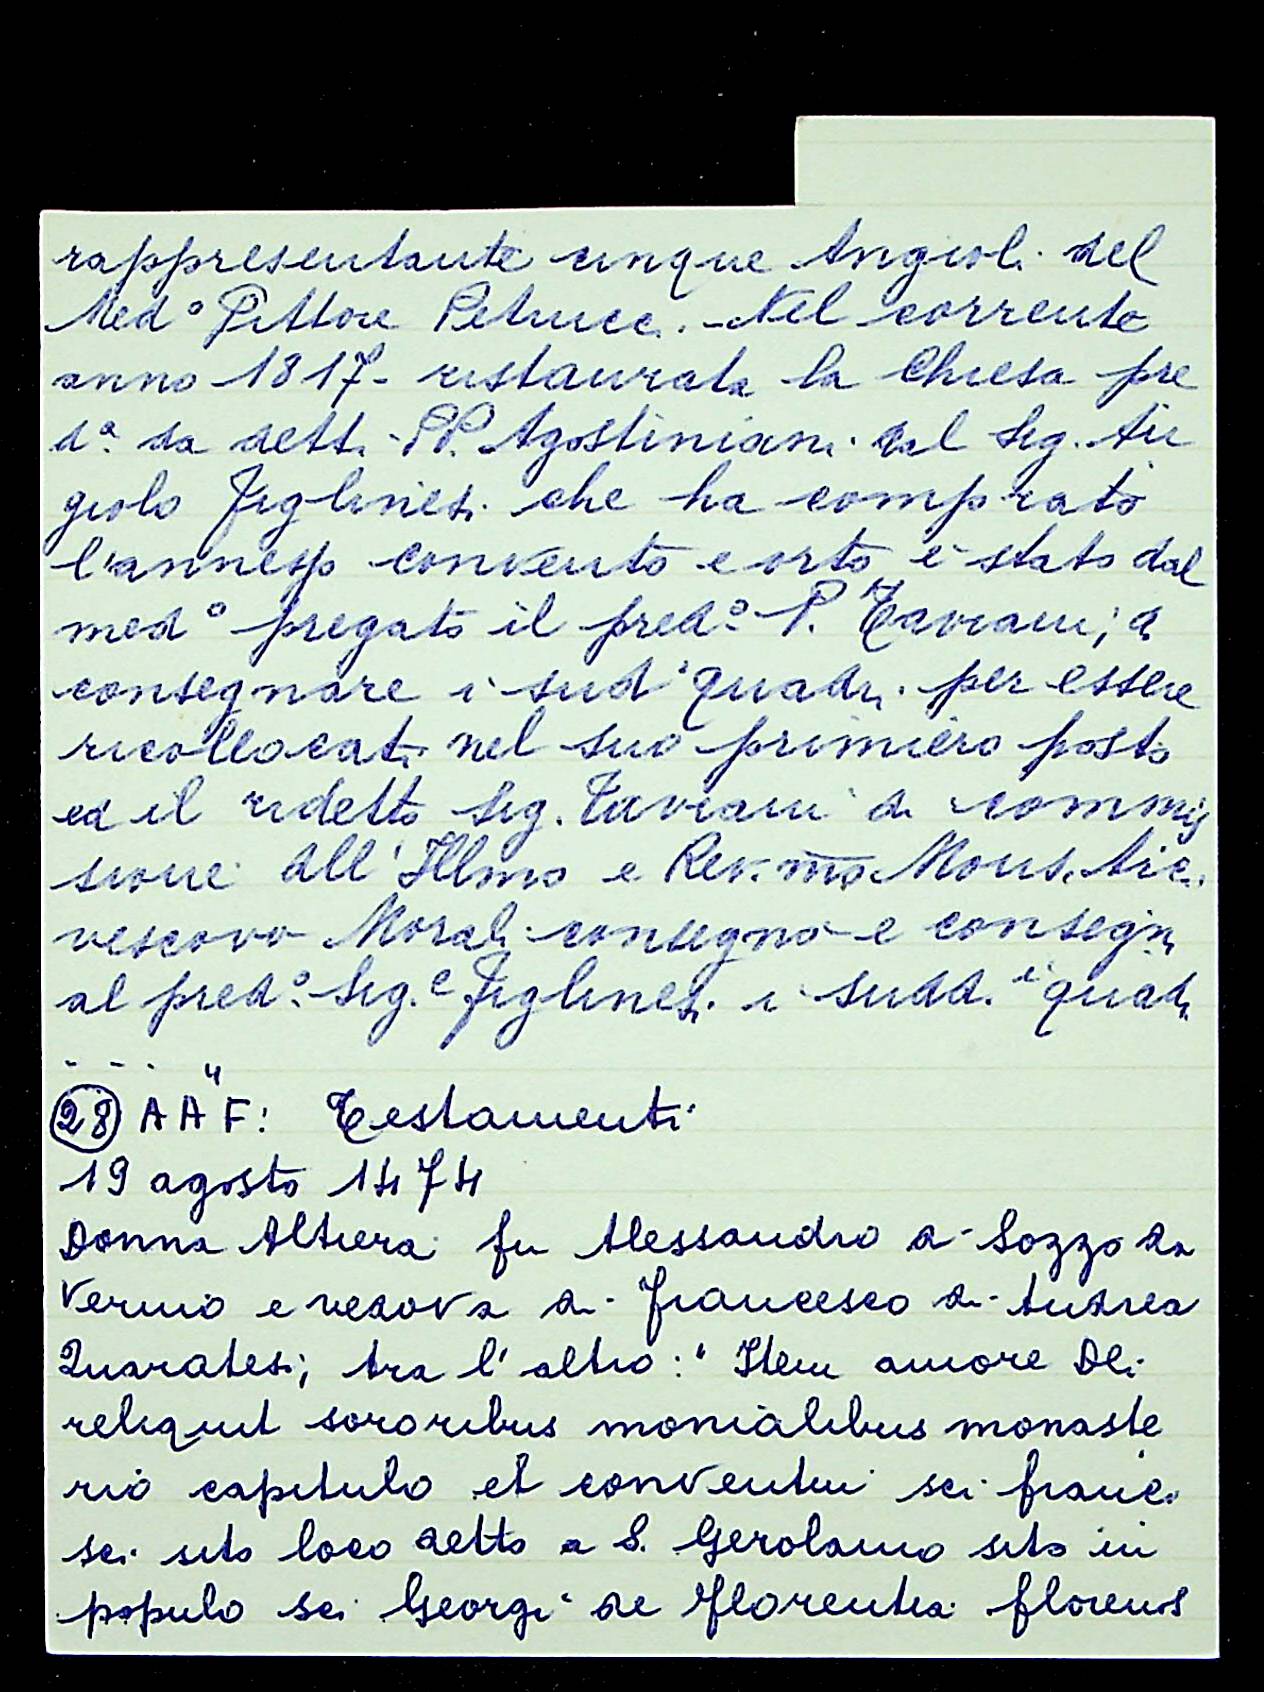 rappresentante cinque Angioli del
Med° Pittore Petrucci. - Nel corrente
anno 1817 - ristaurata la Chiesa pre
d.a da detti PP. Agostiniani dal Sig. An
giolo Figlinesi che ha comprato
l'annesso convento e orto è stato dal
med° pregato il pred.° P. Taviani, a
consegnare i sud.i quadri per essere
ricollocati nel suo primiero posto
ed il ridetto Sig. Taviani di commis
sione dell'Illmo e Rev.mo Mons. Arci
vescovo Morali consegnò e consegna
al pred.° Sig.e Figlinesi i sudd.i quadri
. . . . "
(28) AAF: Testamenti
19 agosto 1474
Donna Altiera fu Alessandro di Sozzo da
Vernio e vedova di Francesco di Andrea
Quaratesi; tra l'altro: "Item amore Dei
reliquit sororibus monialibus monaste
rio capitulo et conventui sci franci
sci sito loco detto a S. Gerolamo sito in
populo sci Georgi de Florentia florenos